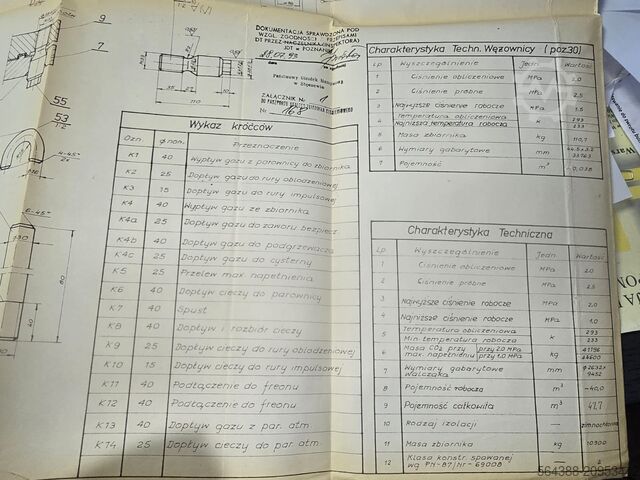 9
7
55
53
1:2
4-45°
2x
6-45°
80
40
110
35
22
10
DOKUMENTACJA SPRAWDZONA POD
WZGL. ZGODNOŚCI Z PRZEPISAMI
DT PRZEZ NACZELNIKA (INSPEKTORA)
JDT w POZNANIU
ZAŁĄCZNIK Nr 1
Nr 168
Wykaz króćców
Ozn. ø nom. Przeznaczenie
K1 40 Wypływ gazu z parownicy do zbiornika
K2 25 Dopływ gazu do rury obłodzeniowej
K3 15 Dopływ gazu do rury impulsowej
K4 40 Wypływ gazu ze zbiornika
K4a 25 Dopływ gazu do zaworu bezpiecz.
K4b 40 Dopływ gazu do podgrzewacza
K4c 25 Dopływ gazu do cysterny
K5 25 Przelew max. napełnienia
K6 40 Dopływ cieczy do parownicy
K7 40 Spust
K8 40 Dopływ i rozbiór cieczy
K9 25 Dopływ cieczy do rury obłodzeniowej
K10 15 Dopływ cieczy do rury impulsowej
K11 40 Podłączenie do freonu
K12 40 Podłączenie do freonu
K13 40 Dopływ gazu z par. atm.
K14 25 Dopływ cieczy do par. atm.
Charakterystyka Techn. Wężownicy (poz.30)
Lp Wyszczególnienie Jedn. Wartość
1 Ciśnienie obliczeniowe MPa 2.0
2 Ciśnienie próbne MPa 2,5
3 Najwyższe ciśnienie robocze MPa 1.5
4 Temperatura obliczeniowa K 293
Najniższa temperatura robocza 233
5 Masa zbiornika kg 110,7
6 Wymiary gabarytowe mm
7 Pojemność m³ 0,038
Charakterystyka Techniczna
Lp Wyszczególnienie Jedn. Wartość
1 Ciśnienie obliczeniowe MPa 2.0
2 Ciśnienie próbne MPa 2.5
3 Najwyższe ciśnienie robocze MPa 2,0
4 Najniższe ciśnienie robocze MPa 1.0
5 Temperatura obliczeniowa K 293
Min. temperatura robocza 233
6 Masa CO₂ przy max. napełnieniu przy 2.0 MPa kg 41196
przy 1.0 MPa
7 Wymiary gabarytowe mm ø2632x
Walczaka 9452
8 Pojemność robocza m³ ~40,0
9 Pojemność całkowita m³ 41,7
10 Rodzaj izolacji — zimnochłonna
11 Masa zbiornika kg 10300
12 Klasa konstr. spawanej — 2
wg PN-87/M-69008
564388-209534